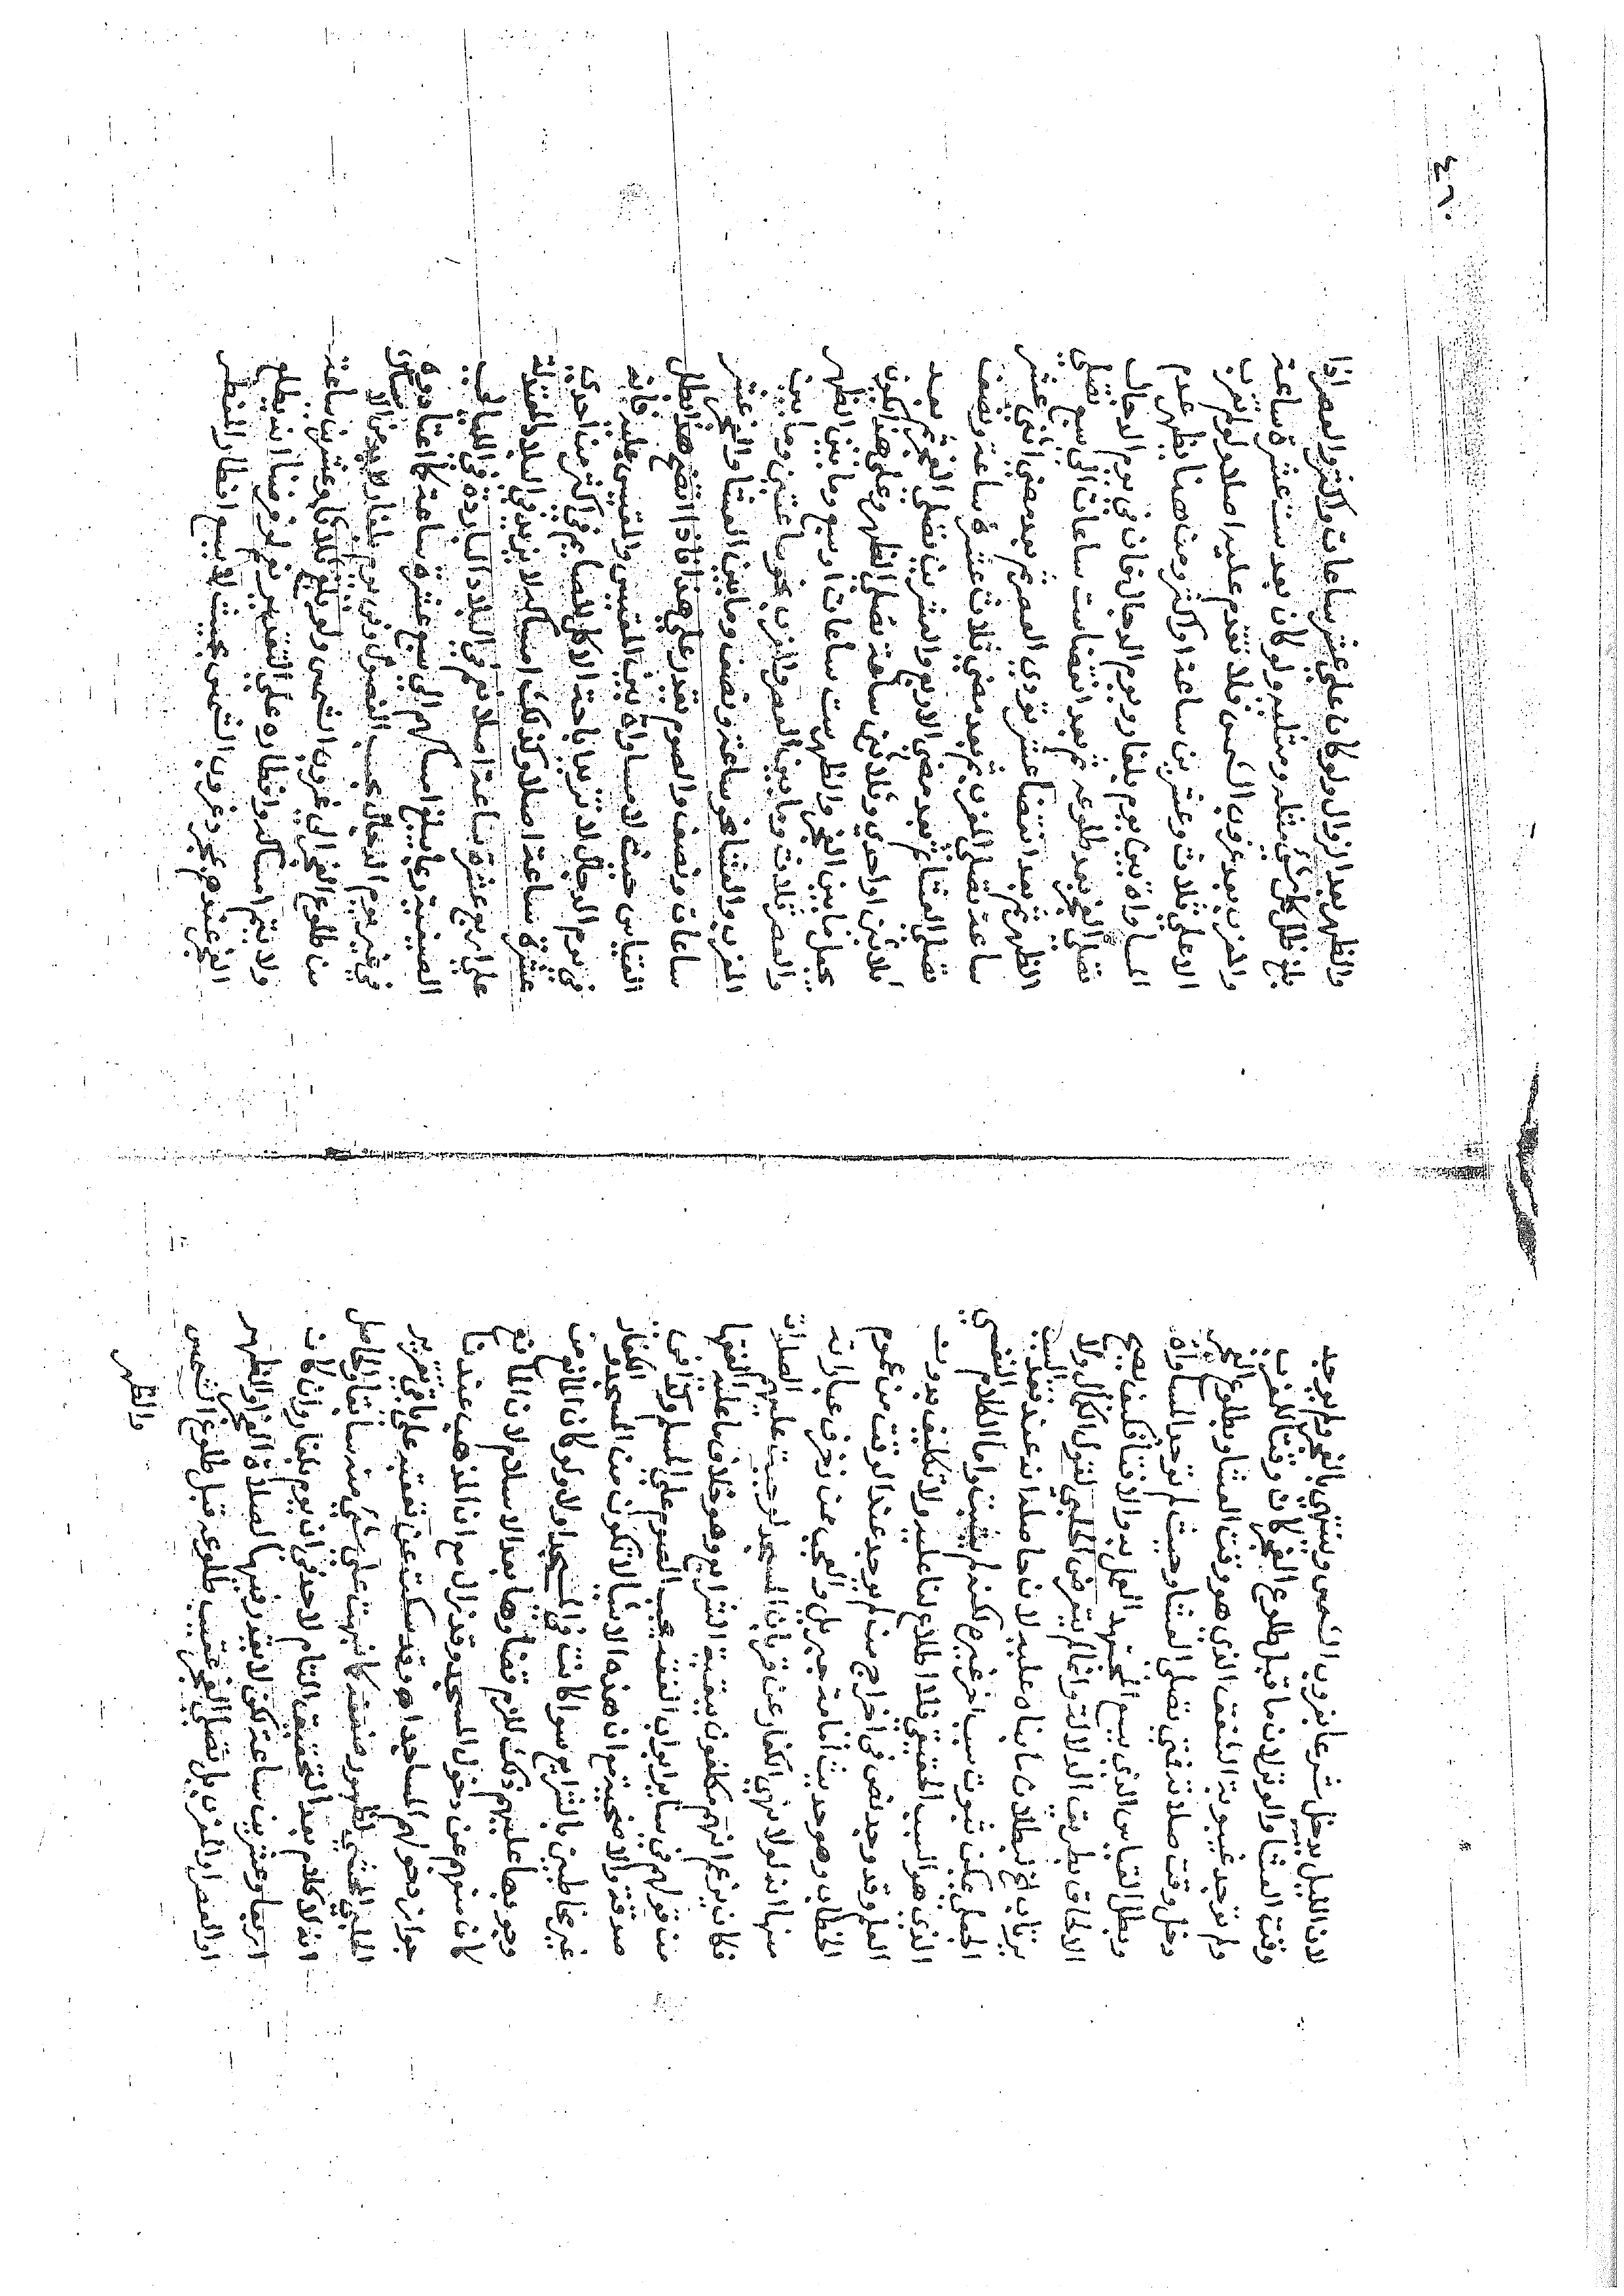 لان الليل يدخل شرعا بغروب الشمس وينتهي بالفجر ولم يوجد
وقت العشا والوتر لان ما قبل طلوع الفجر كان وقتا للمغرب
ولم توجد غيبوبة الشفق الذي هو وقت العشا وبطلوع الفجر
دخل وقت صلاته فمتى تصلى العشا وحيث لم توجد المساواة
وبطل القياس الذي يسع المجتهد العمل به والافتا فكيف يصح
الالحاق بطريق الدلالة وانما لم يتعرض الحلبي لقول الكمال ولا
يرتاب الخ لبطلان ما بناه عليه لان حاصله انه عند فقد السبب
الجعلي يمكن ثبوت سبب اخر غيره لكنه لم يثبت واما الكلام النفسي
الذي هو السبب الحقيقي فلا اطلاع لنا عليه ولا تكليف بدون
العلم وقد وجد نص في اخراج من لم يوجد عنده الوقت من عموم
الخطاب وهو حديث امامة جبريل والعجب من زخرف عباراته
منها انه لولا نهي الكفار عن قربان المسجد لوجبت عليهم الصلاة
فكان يزعم انهم مكلفون ببقية الشرايع وهو خلاف ما عليه الفقها
من قولهم في ساير ابواب الفقه يجب الصوم على المسلم وكذا في
صدقة والاضحية مع ان هذه الاشيا لا تكون من المسجد والكفار
غير مخاطبين بالشرايع سوا كانت في المسجد اولا ولو كان المانع من
وجوبها عليهم ذلك للزم قضاوها بعد الاسلام لان المانع
كان منعهم عن دخول المسجد وقد زال مع ان المذهب عندنا
جواز دخولهم المساجد اهـ وقد سكت عن تعقبه على باقي تقرير
الحلبي المحشي لظهور ضعفه كما نبهت على شيء منه سابقا والحاصل
انه لا كلام بعد التحقيق التام لاحد في ان يوم بلغار وان كان
اربعا وعشرين ساعة لكن لا يقدر فيها لصلاة الفجر والظهر
او العصر او المغرب بل تصلى الفجر عقيب طلوعه قبل طلوع الشمس
والظهر
٤٦٠
والظهر بعد الزوال ولو كان على عشر ساعات واكثر والعصر اذا
بلغ ظل كل شيء مثله ومثليه ولو كان بعد ست عشرة ساعة
والمغرب بعد غروب الشمس فلا تقدم عليه اصلا ولو لم تغرب
الا على ثلاث وعشرين ساعة واكثر ومن هنا يظهر عدم
المساواة بين يوم بلغار ويوم الدجال فان في يوم الدجال
تصلى الفجر بعد طلوعه ثم بعد انقضاء ست ساعات الى سبع تصلى
الظهر ثم بعد انقضا عشر تودى العصر ثم بعد مضي اثني عشر
ساعة تصلى المغرب ثم بعد مضي ثلاث عشرة ساعة ونصف
تصلى العشا ثم بعد مضي الاربع والعشرين تصلى الفجر ثم بعد
ثلاثين او احدى وثلاثين ساعة تصلى الظهر وعلى هذا يكون
يجعل ما بين الفجر والظهر ست ساعات او سبع وما بين الظهر
والعصر ثلاث وما بين العصر والمغرب نحو ساعتين وما بين
المغرب والعشا نحو ساعة ونصف وما بين العشا والفجر عشر
ساعات ونصف والصوم يقدر على هذا فاذا اتضح هذا بطل
القياس حيث لا مساواة بين المقيس والمقيس عليه فانه
في يوم الدجال لا تزيد اباحة الاكل للصايم في اكثر من احدى
عشرة ساعة اصلا وكذلك امساكه لا يزيد في البلاد المعتدلة
على اربع عشرة ساعة اصلا نعم في البلاد الباردة في الليالي
الصيفية ربما يبلغ امساكهم الى سبع عشرة ساعة كما اعتادوه
في غير يوم الدجال بحسب الفصول وفي يوم بلغار لا بد من الامساك
من طلوع الفجر الى غروب الشمس ولو بلغ ثلاثا وعشرين ساعة
ولا يتم امساكه وافطاره على التقدير نعم لو فرضنا انه يطلع
الفجر عندهم بمجرد غروب الشمس بحيث لا يسع افطار المفطر